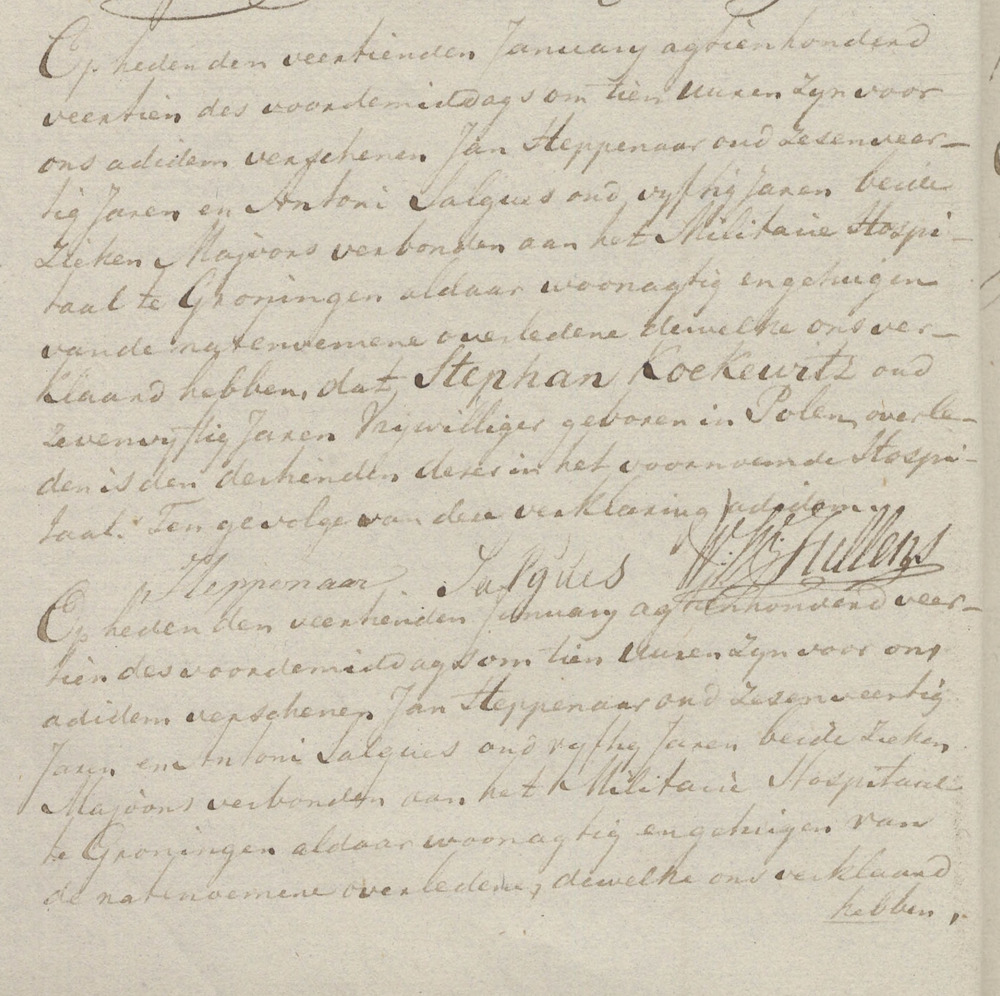 Op heden den veertienden January agtienhonderd
veertien des voordemiddags om tien uuren Zyn voor
ons adidem verschenen Jan Heppenaar oud Zesenveer-
tig Jaren en Antoni Salgues oud vyftig Jaren beide
Zieken Majoors verbonden aan het Militaire Hospi-
taal te Groningen aldaar woonagtig en getuigen
van de natenoemene overledene dewelke ons ver-
klaard hebben, dat Stephan Koekewitz oud
zevenvyftig Jaren Vrijwilliger geboren in Polen, overle-
den is den dertienden dezer in het voornoemde Hospi-
taal. Ten gevolge van deze verklaring adidem
Heppenaar Salgues
Op heden den veertienden January agtienhonderd veer-
tien des voordemiddags om tien uuren Zyn voor ons
adidem verschenen Jan Heppenaar oud Zesenveertig
Jaren en Antoni Salgues oud vyftig Jaren beide Zieken
Majoors verbonden aan het Militaire Hospitaal
te Groningen aldaar woonagtig en getuigen van
de natenoemene overledene, dewelke ons verklaard
hebben,